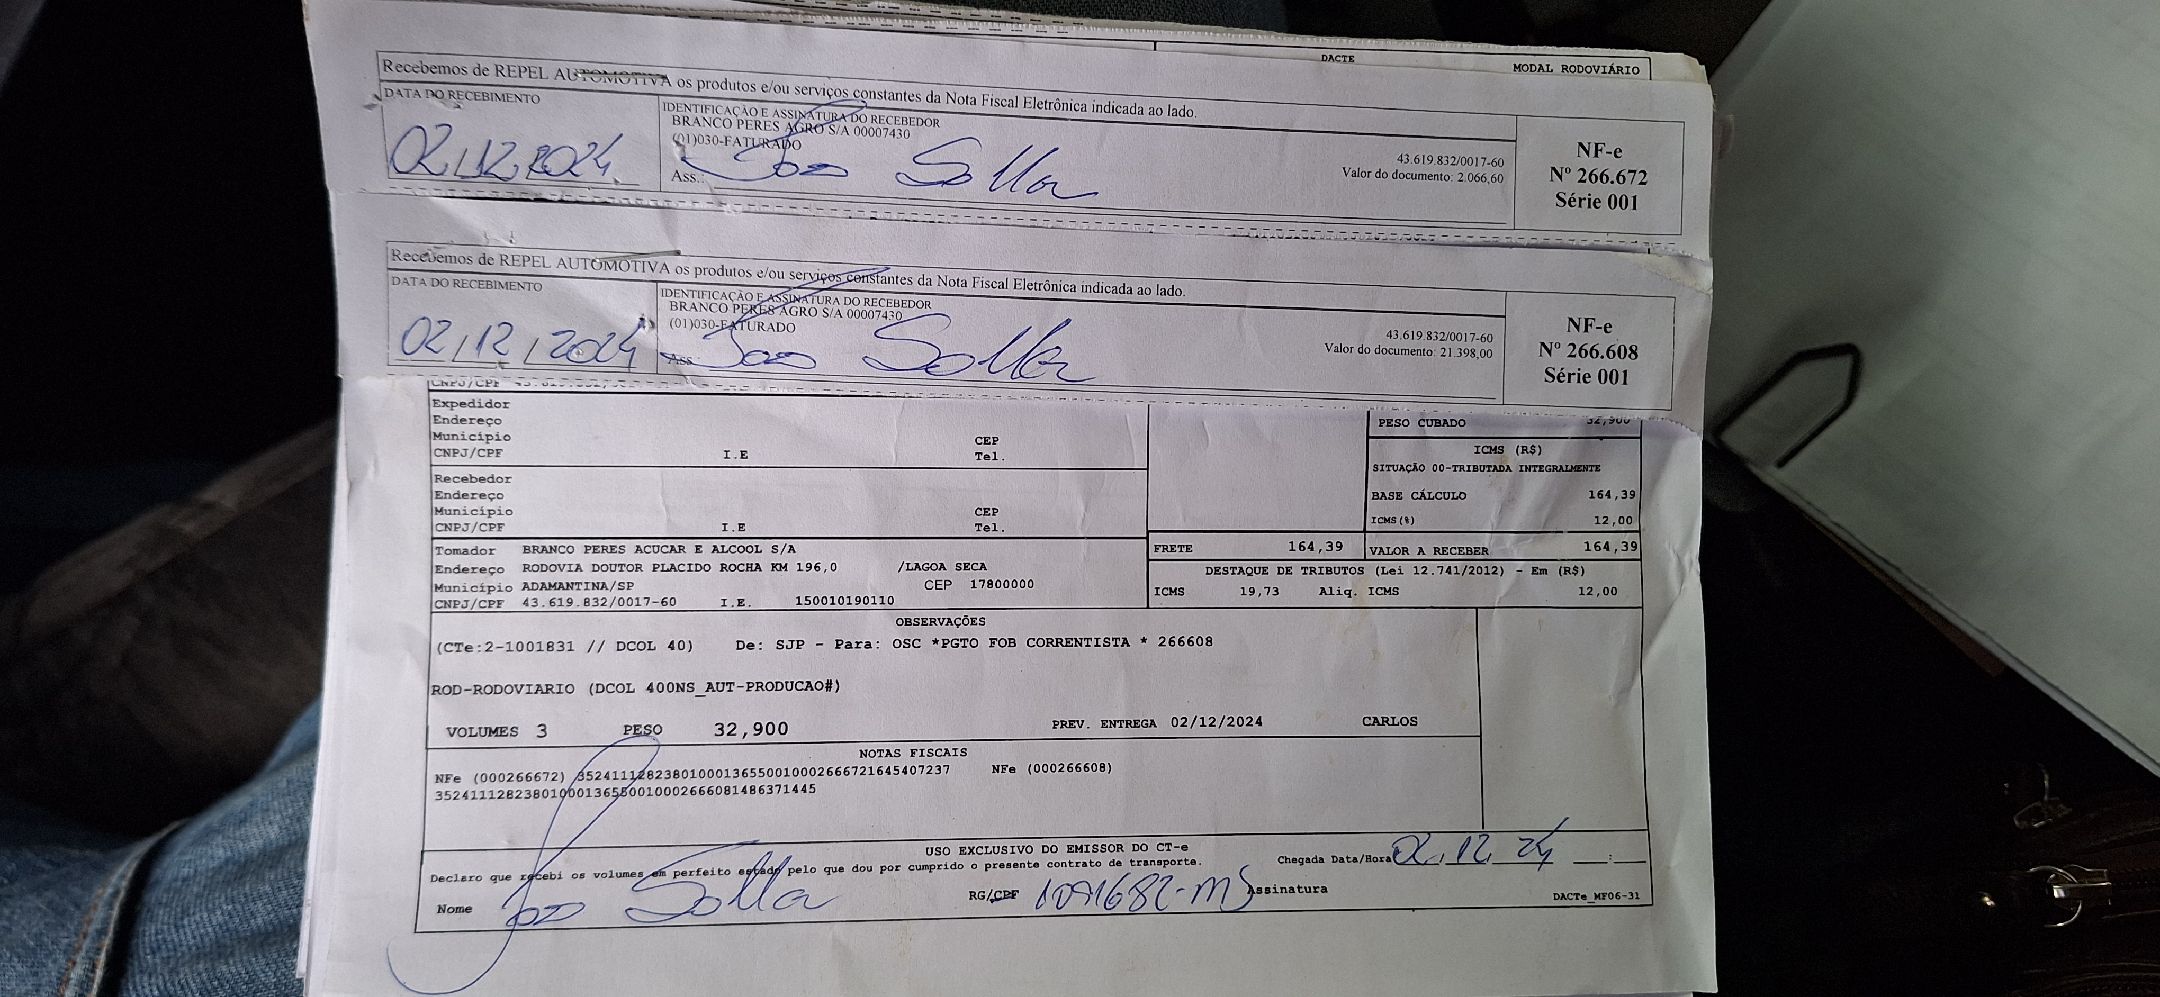 DACTE
MODAL RODOVIÁRIO
Recebemos de REPEL AUTOMOTIVA os produtos e/ou serviços constantes da Nota Fiscal Eletrônica indicada ao lado.
DATA DO RECEBIMENTO
02/12/2024
IDENTIFICAÇÃO E ASSINATURA DO RECEBEDOR
BRANCO PERES AGRO S/A 00007430
(01)030-FATURADO
Ass.:
43.619.832/0017-60
Valor do documento: 2.066,60
NF-e
Nº 266.672
Série 001
Recebemos de REPEL AUTOMOTIVA os produtos e/ou serviços constantes da Nota Fiscal Eletrônica indicada ao lado.
DATA DO RECEBIMENTO
02/12/2024
IDENTIFICAÇÃO E ASSINATURA DO RECEBEDOR
BRANCO PERES AGRO S/A 00007430
(01)030-FATURADO
Ass.
43.619.832/0017-60
Valor do documento: 21.398,00
NF-e
Nº 266.608
Série 001
CNPJ/CPF
Expedidor
Endereço
Município CEP
CNPJ/CPF I.E Tel.
Recebedor
Endereço
Município CEP
CNPJ/CPF I.E Tel.
PESO CUBADO 32,900
ICMS (R$)
SITUAÇÃO 00-TRIBUTADA INTEGRALMENTE
BASE CÁLCULO 164,39
ICMS(%) 12,00
Tomador BRANCO PERES ACUCAR E ALCOOL S/A
Endereço RODOVIA DOUTOR PLACIDO ROCHA KM 196,0 /LAGOA SECA
Município ADAMANTINA/SP CEP 17800000
CNPJ/CPF 43.619.832/0017-60 I.E. 150010190110
FRETE 164,39 VALOR A RECEBER 164,39
DESTAQUE DE TRIBUTOS (Lei 12.741/2012) - Em (R$)
ICMS 19,73 Aliq. ICMS 12,00
OBSERVAÇÕES
(CTe:2-1001831 // DCOL 40) De: SJP - Para: OSC *PGTO FOB CORRENTISTA * 266608
ROD-RODOVIARIO (DCOL 400NS_AUT-PRODUCAO#)
VOLUMES 3 PESO 32,900 PREV. ENTREGA 02/12/2024 CARLOS
NOTAS FISCAIS
NFe (000266672) 35241112823801000136550010002666721645407237 NFe (000266608)
35241112823801000136550010002666081486371445
USO EXCLUSIVO DO EMISSOR DO CT-e
Declaro que recebi os volumes em perfeito estado pelo que dou por cumprido o presente contrato de transporte.
Chegada Data/Hora 02.12.24 __:__
Nome
RG/CPF 1091682-MS Assinatura
DACTe_MF06-31